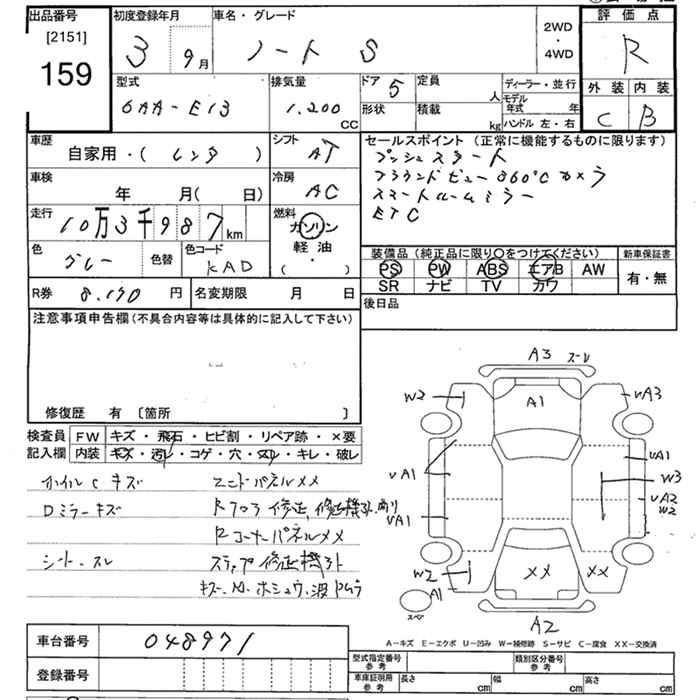 出品番号 [2151] 159
初度登録年月 3 9月
車名・グレード ノート S
2WD・4WD
評価点 R
外装 C 内装 B
型式 6AA-E13
排気量 1.200 CC
ドア 5 形状
定員 人 積載 kg
ディーラー・並行 モデル年式 年 ハンドル 左・右
車歴 自家用・( レンタ )
シフト AT
セールスポイント (正常に機能するものに限ります)
プッシュスタート
アラウンドビュー 360°C カメラ
スマートルームミラー
ETC
車検 年 月( 日)
冷房 AC
走行 10万3千987km
燃料 ガソリン 軽油・( )
色 グレー 色替 色コード KAD
装備品 (純正品に限り○をつけてください) 新車保証書
PS PW ABS エアB AW 有・無
SR ナビ TV カワ
R券 8.190円 名変期限 月 日
後日品
注意事項申告欄 (不具合内容等は具体的に記入して下さい)
修復歴 有 [箇所 ]
検査員記入欄 FW キズ・飛石・ヒビ割・リペア跡・×要
内装 キズ・汚れ・コゲ・穴・スレ・キレ・破レ
ホイルCキズ エンドパネルXX
Dミラーキズ Rフロア修正、修正機引、曲り
RコーナーパネルXX
シート スレ ステップ修正機引
A3 スレ
W2 A1 VA3
VA1 VA1
W3
VA1 VA2
W2
W2 XX XX
A1
スペア
A2
A-キズ E-エクボ U-凹み W-補修跡 S-サビ C-腐食 XX-交換済
車台番号 048971
登録番号
型式指定番号 参考 類別区分番号 参考
車庫証明用 参考 長さ cm 幅 cm 高さ cm